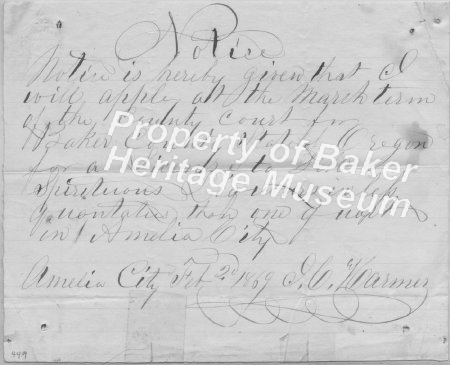 Notice
Notice is hereby given that I
will apple at the March term
of the County Court for
Baker County State of Oregon
for a
spirituous Liquors in less
quontaties than one q
in Amelia City
Amelia City Feb 2d 1869 J. C. Karmer
Property of Baker
Heritage Museum
449